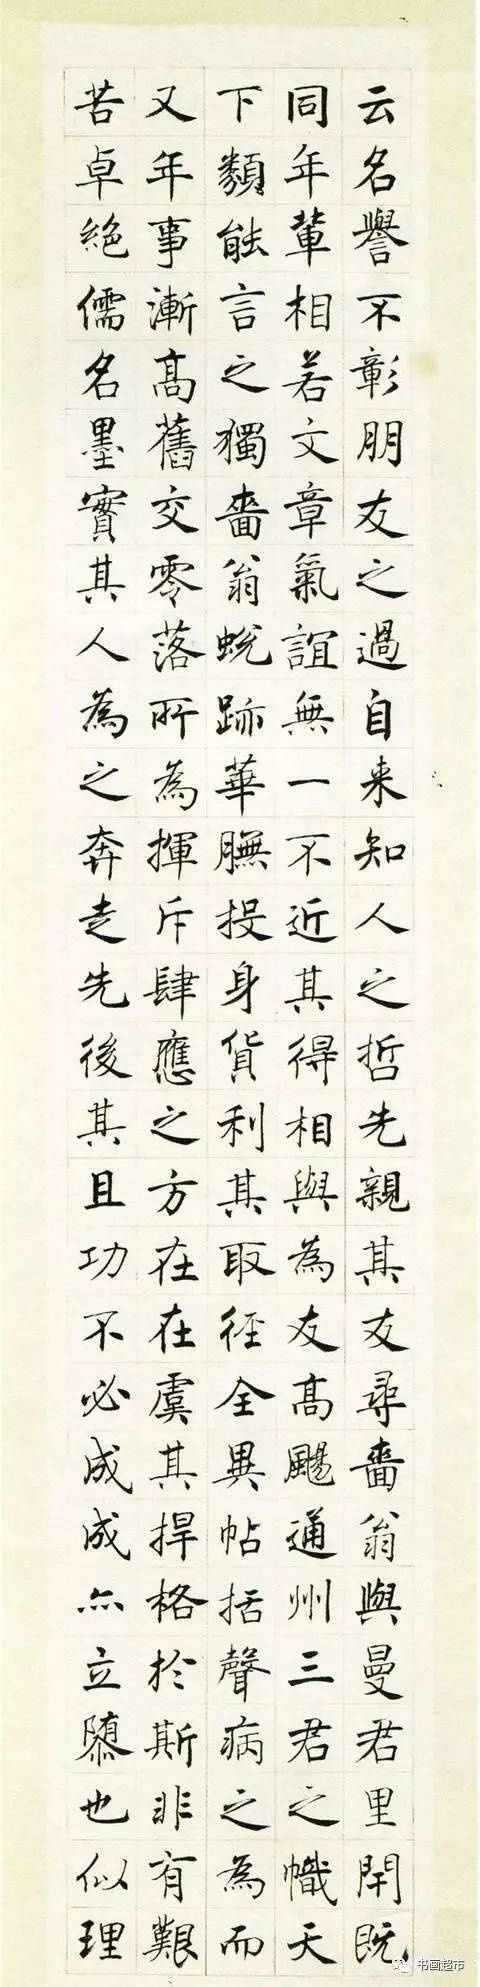 云名譽不彰朋友之過自来知人之哲先親其友尋嗇翁與曼君里閈既
同年輩相若文章氣誼無一不近其得相與為友高颺通州三君之幟天
下類能言之獨嗇翁蛻跡華膴投身貨利其取径全異帖括聲病之為而
又年事漸高舊交零落所為揮斥肆應之方在在虞其捍格於斯非有艱
苦卓絕儒名墨實其人為之奔走先後其且功不必成成亦立隳也似理
书画超市